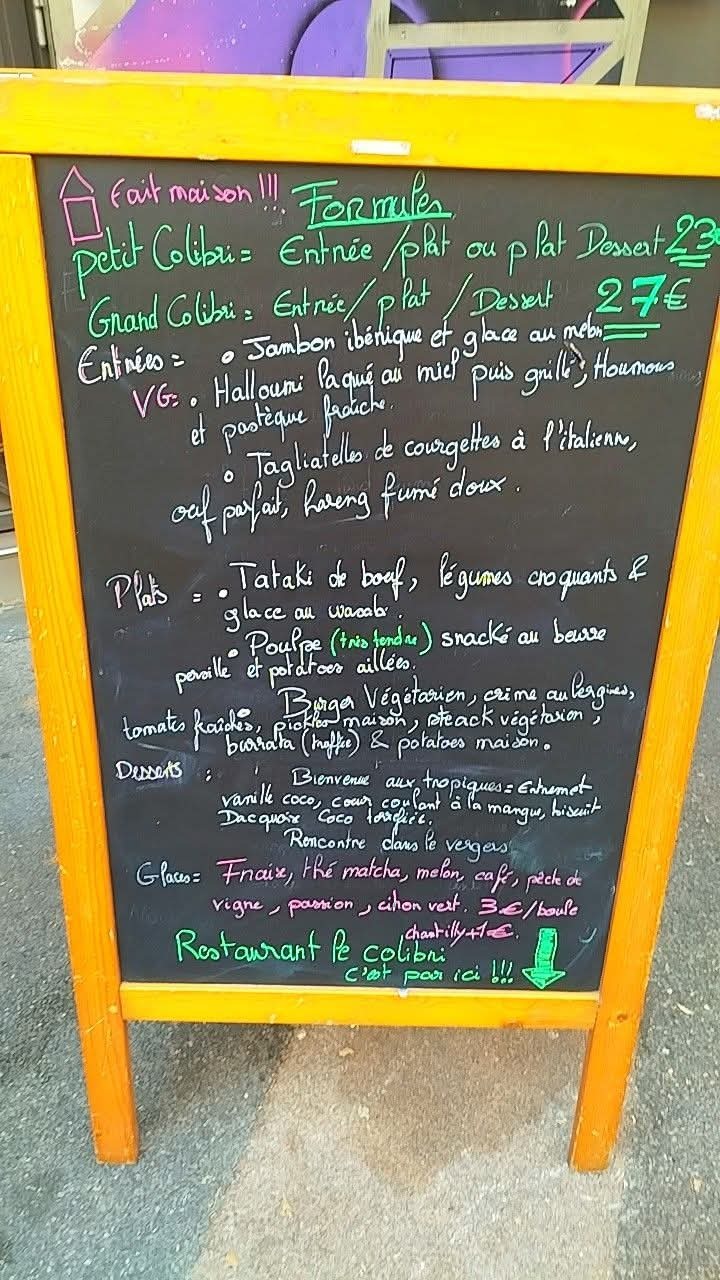 Fait maison !!! Formules
petit Colibri = Entrée / plat ou plat Dessert 23€
Grand Colibri = Entrée / plat / Dessert 27€
Entrées = • Jambon ibérique et glace au melon
VG: • Halloumi laqué au miel puis grillé, Houmous
et pastèque fraîche.
• Tagliatelles de courgettes à l'italienne,
œuf parfait, hareng fumé doux.
Plats = • Tataki de bœuf, légumes croquants &
glace au wasabi.
• Poulpe (très tendre) snacké au beurre
persillé et potatoes aillées.
Burger Végétarien, crème aubergines,
tomates fraîches, pickles maison, steack végétarien,
burrata (truffée) & potatoes maison.
Desserts : Bienvenue aux tropiques = Entremet
vanille coco, cœur coulant à la mangue, biscuit
Dacquoix Coco torréfiée.
Rencontre dans le vergers
Glaces = Fraise, thé matcha, melon, café, pêche de
vigne, passion, citron vert. 3€/boule
chantilly +1€.
Restaurant le colibri
c'est par ici !!!